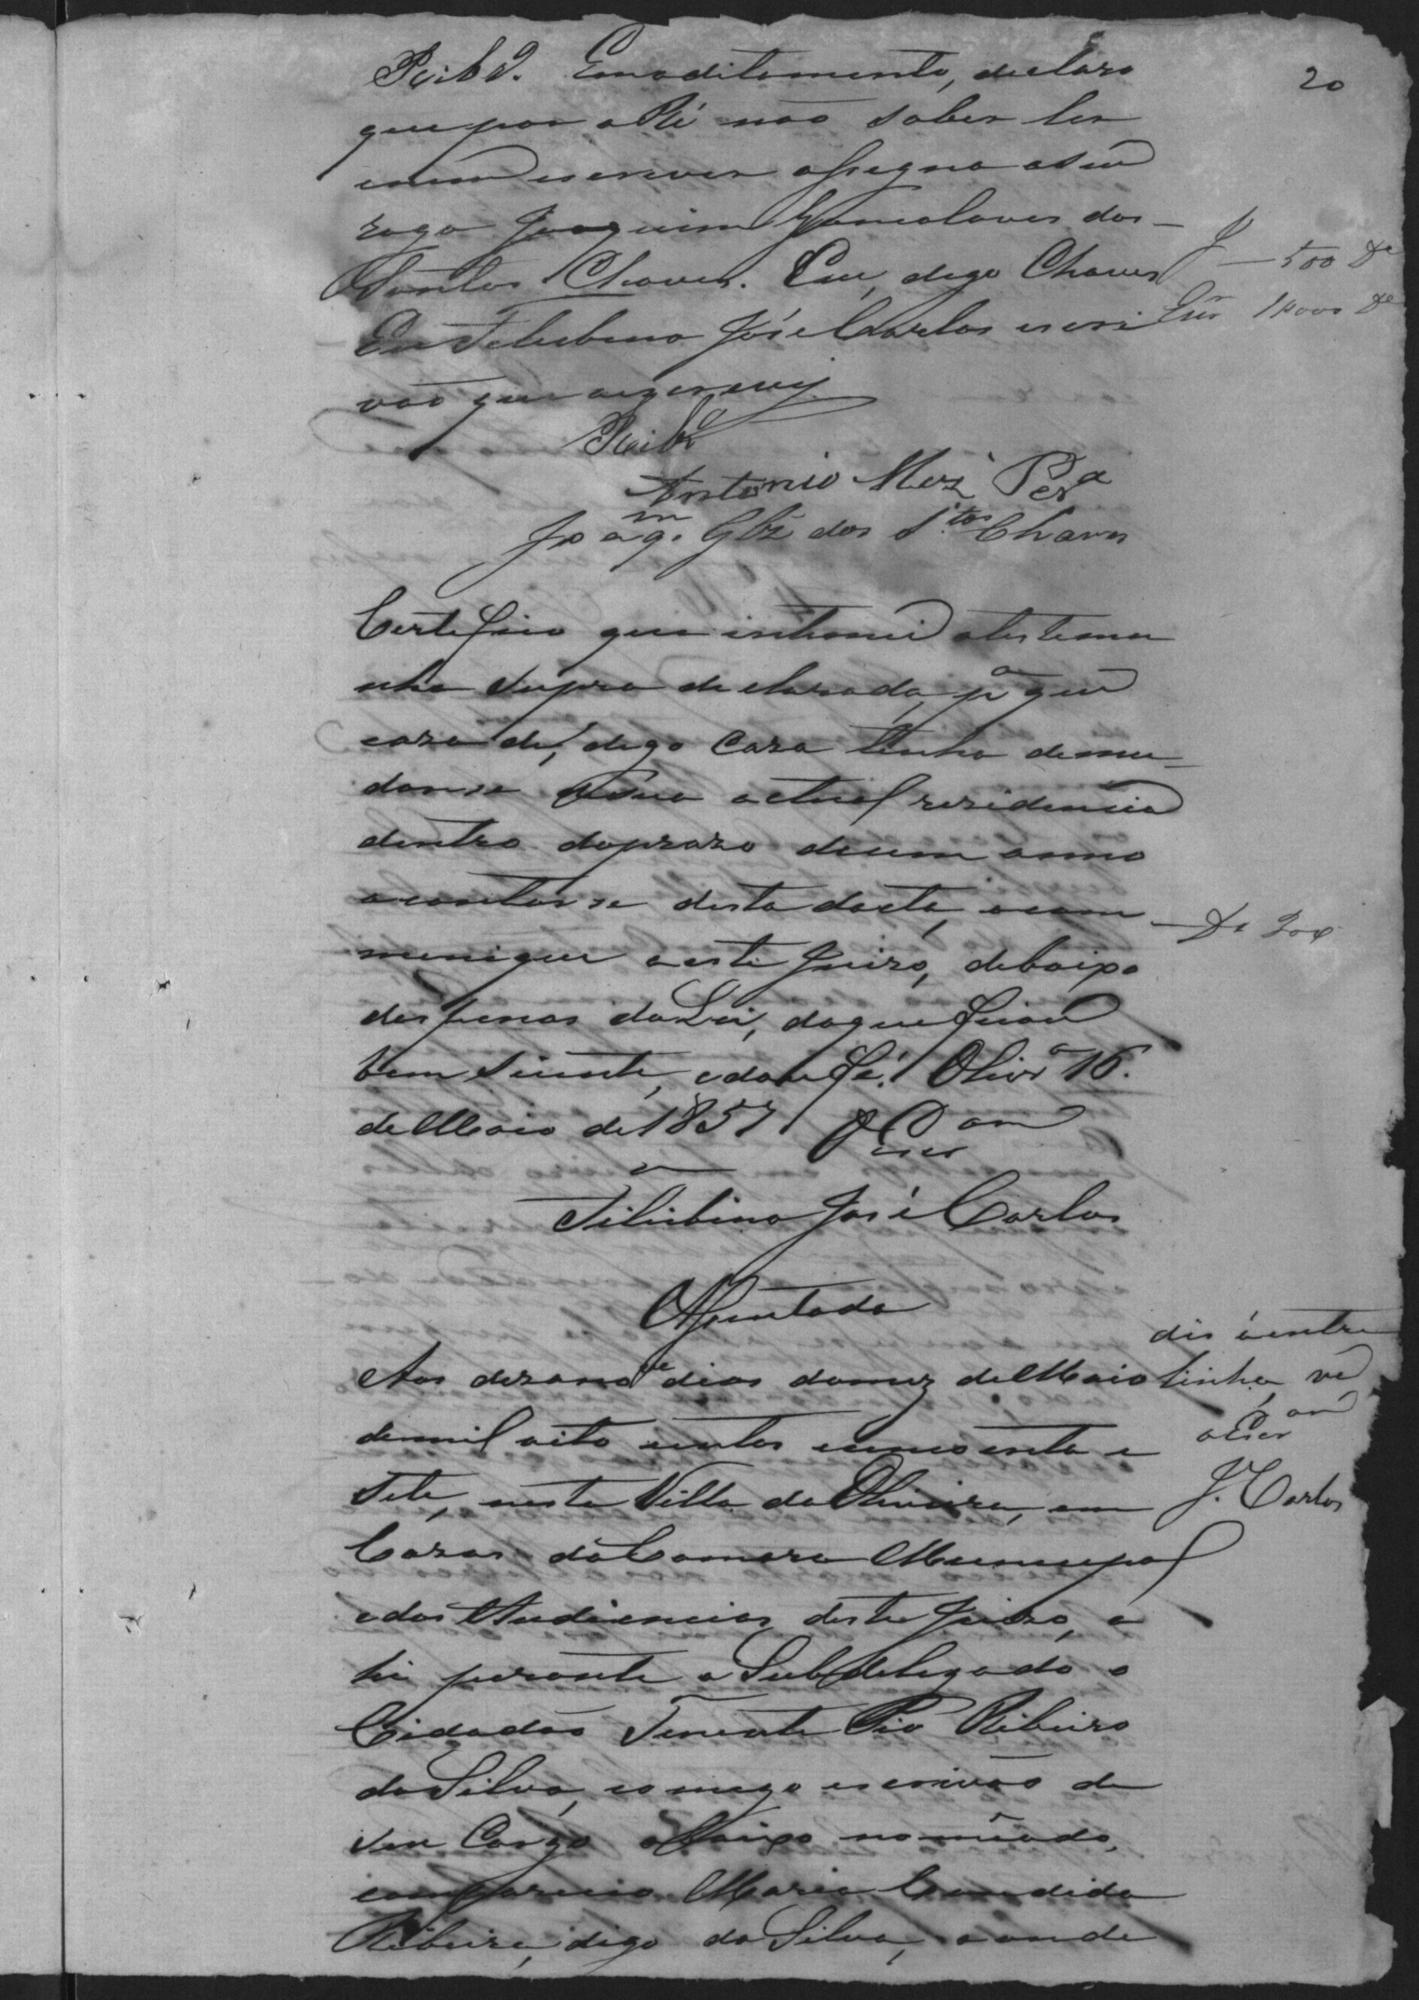 20
Ribrº. Em aditamento, declaro
que por a Ré não saber ler
nem escrever assigna a seu
rogo Joaquim Goncalaves dos
Santos Chaves. Eu, digo Chaves
Eu Felisbino José Carlos escri
vão que escrevy.
J — 500 De
1000 De
Ribrº
Antonio Per.ª
Joaq.m Glz dos S.tos Chaves
Certifico que intimei a testemu
nha supra declarada, pª que
caso de, digo caso tenha de mu
dar-se de sua actual residencia
dentro do prazo de um anno
a contar se desta dacta, o com
munique a este Juizo, debaixo
das penas da Lei, do que ficou
bem siente, e dou fé. Olivrª 16.
de Maio de 1857. O Escram
De 200
Felisbino José Carlos
Ajuntada
Aos dezanove dias do mez de Maio
de mil oito centos cincoenta e
sete, nesta Villa da Oliveira, em
Cazas da Camara Municipal
e das Audiencias deste Juizo, a
hi perante o Subdelegado o
Cidadão Tenente Pio Ribeiro
da Silva, comigo escrivão de
seu Cargo abaixo nomiado,
compareceo Maria Candida
Ribeira, digo da Silva, aonde
diz a entre
linha, ve
o Escram
J. Carlos